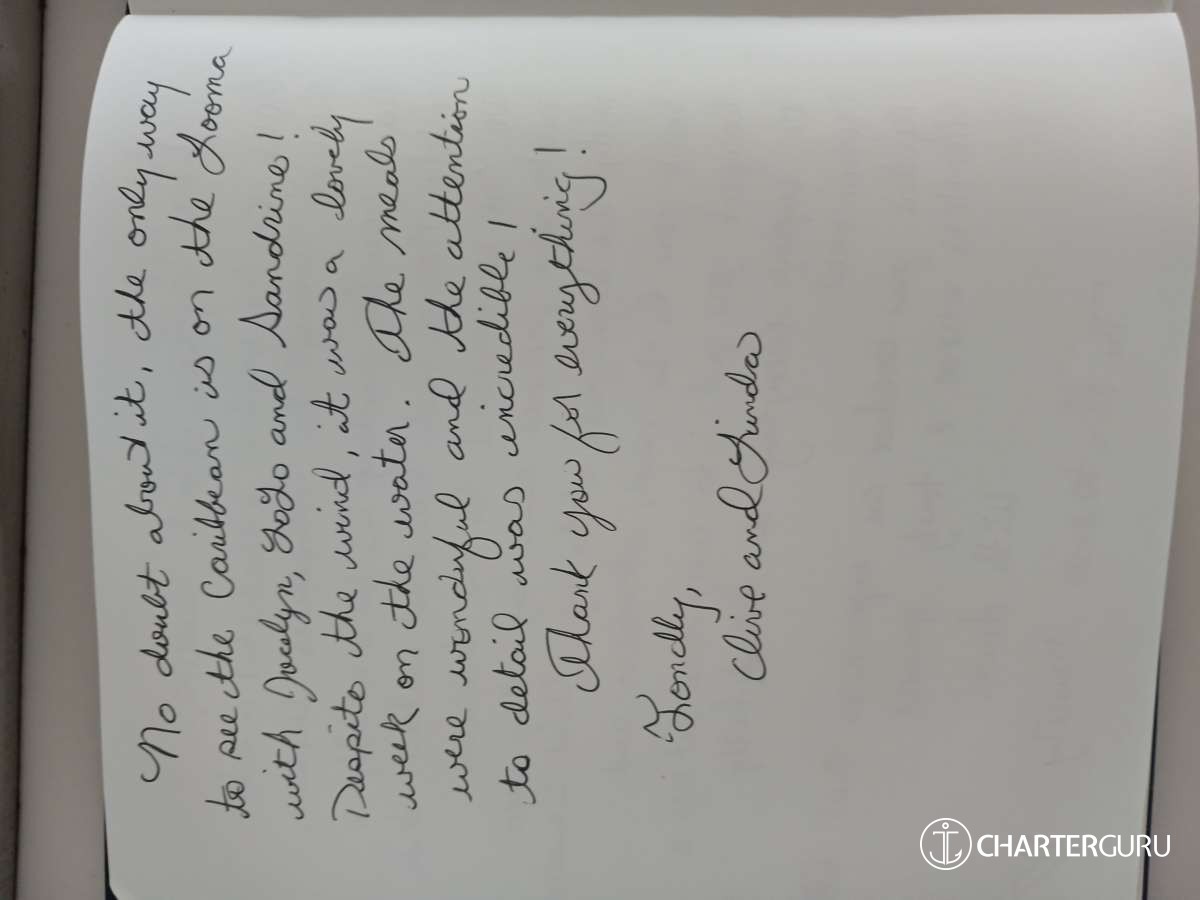 No doubt about it, the only way
to see the Caribbean is on the Looma
with Jocelyn, JoJo and Sandrine!
Despite the wind, it was a lovely
week on the water. The meals
were wonderful and the attention
to detail was incredible!
Thank you for everything!
Fondly,
Clive and Linda
CHARTERGURU